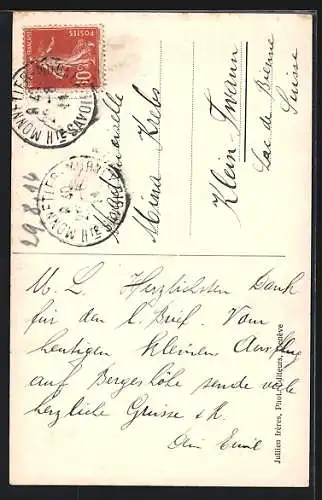 Mademoiselle
Mina Krebs
Klein-Twann
Lac de Bienne
Suisse
29.8.14
M. L. Herzlichsten Dank
für den l. Brief. Vom
heutigen kleinen Ausflug
auf Bergeshöhe sende viele
herzliche Grüsse & K.
Dein Emil
Jullien frères, Phot.-Editeurs, Genève
POSTES
10
MONNETIER-MORNEX
MONNETIER-MORNEX